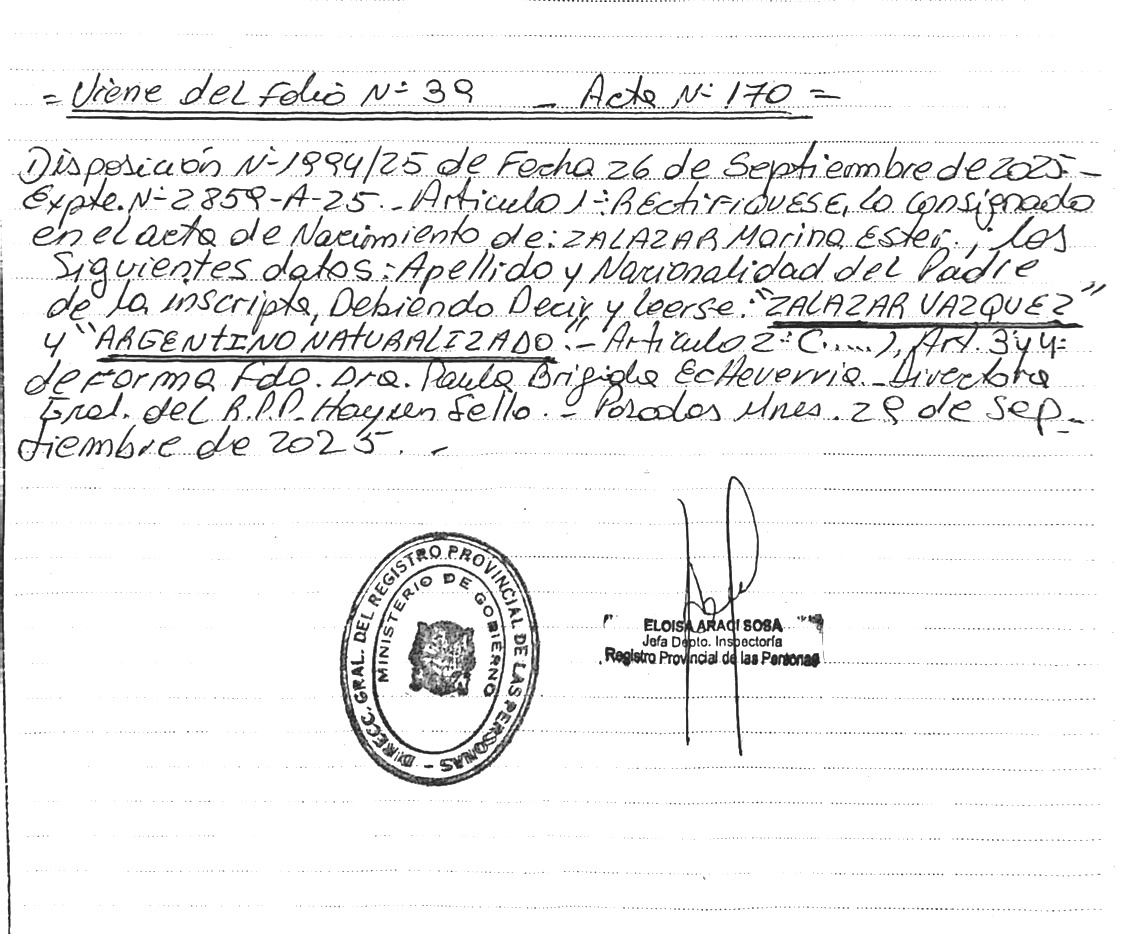 = Viene del Folio N° 39 - Acta N° 170 =
Disposición N° 1994/25 de Fecha 26 de Septiembre de 2025 -
Expte. N° 2859-A-25.- Artículo 1°: RECTIFIQUESE, lo consignado
en el acta de Nacimiento de: ZALAZAR Marina Ester.; los
Siguientes datos: Apellido y Nacionalidad del Padre
de la inscripta, Debiendo Decir y leerse: "ZALAZAR VAZQUEZ"
y "ARGENTINO NATURALIZADO".- Artículo 2° (.....), Art. 3 y 4°
de Forma Fdo. Dra. Paula Brigida Echeverria - Directora
Gral. del R.P.P. Hay un Sello.- Posadas Mnes. 29 de Sep-
tiembre de 2025. -
DIRECC. GRAL. DEL REGISTRO PROVINCIAL DE LAS PERSONAS -
MINISTERIO DE GOBIERNO
ELOISA ARACI SOSA
Jefa Depto. Inspectoría
Registro Provincial de las Personas